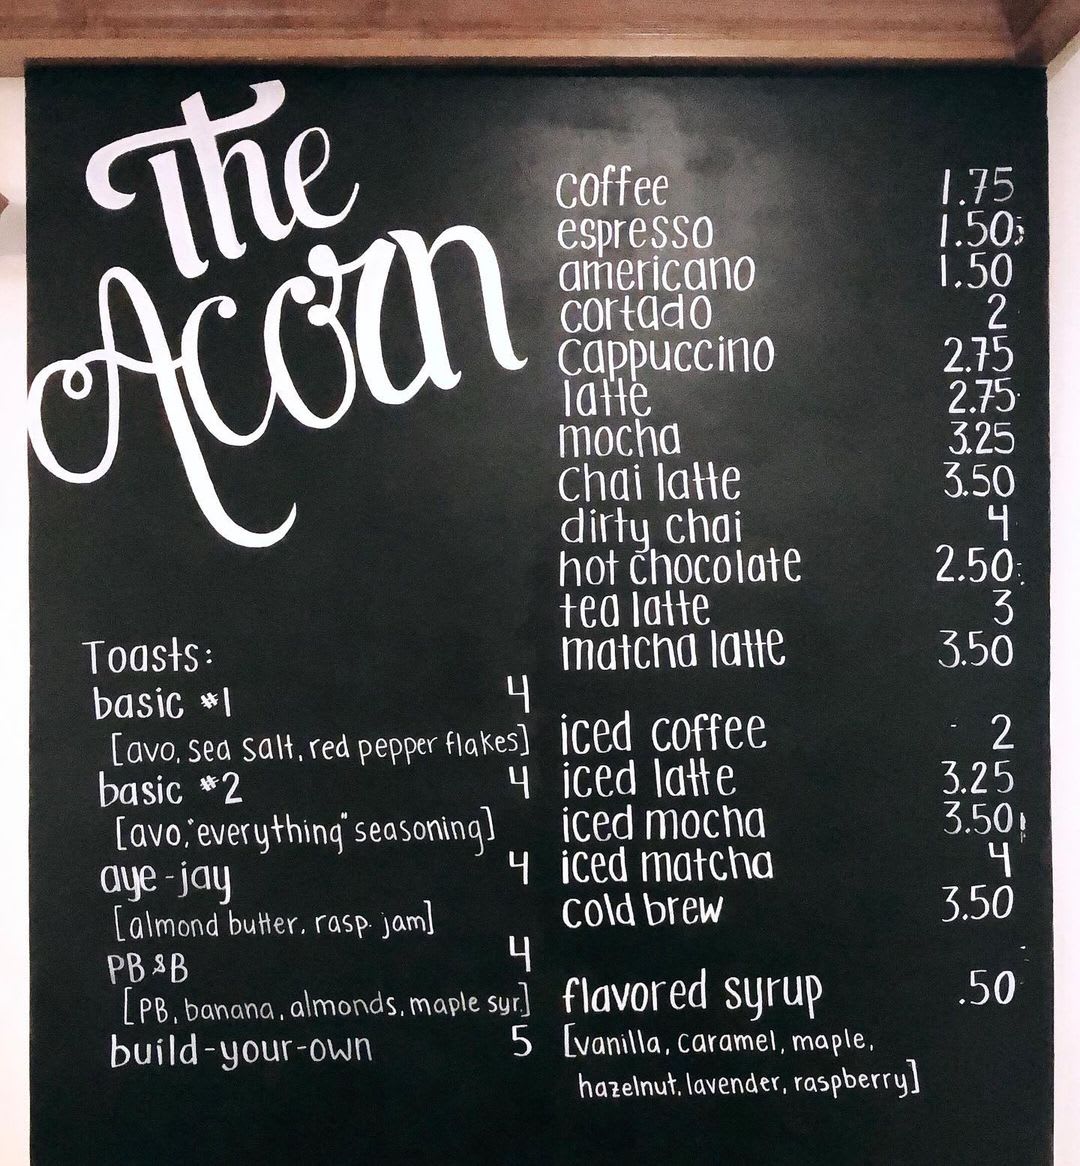 The
Acorn
Toasts:
basic #1 4
[avo, sea salt, red pepper flakes]
basic #2 4
[avo, "everything" seasoning]
aye-jay 4
[almond butter, rasp. jam]
PB &B 4
[PB, banana, almonds, maple syr.]
build-your-own 5
coffee 1.75
espresso 1.50
americano 1.50
cortado 2
cappuccino 2.75
latte 2.75
mocha 3.25
chai latte 3.50
dirty chai 4
hot chocolate 2.50
tea latte 3
matcha latte 3.50
iced coffee 2
iced latte 3.25
iced mocha 3.50
iced matcha 4
cold brew 3.50
flavored syrup .50
[vanilla, caramel, maple,
hazelnut, lavender, raspberry]